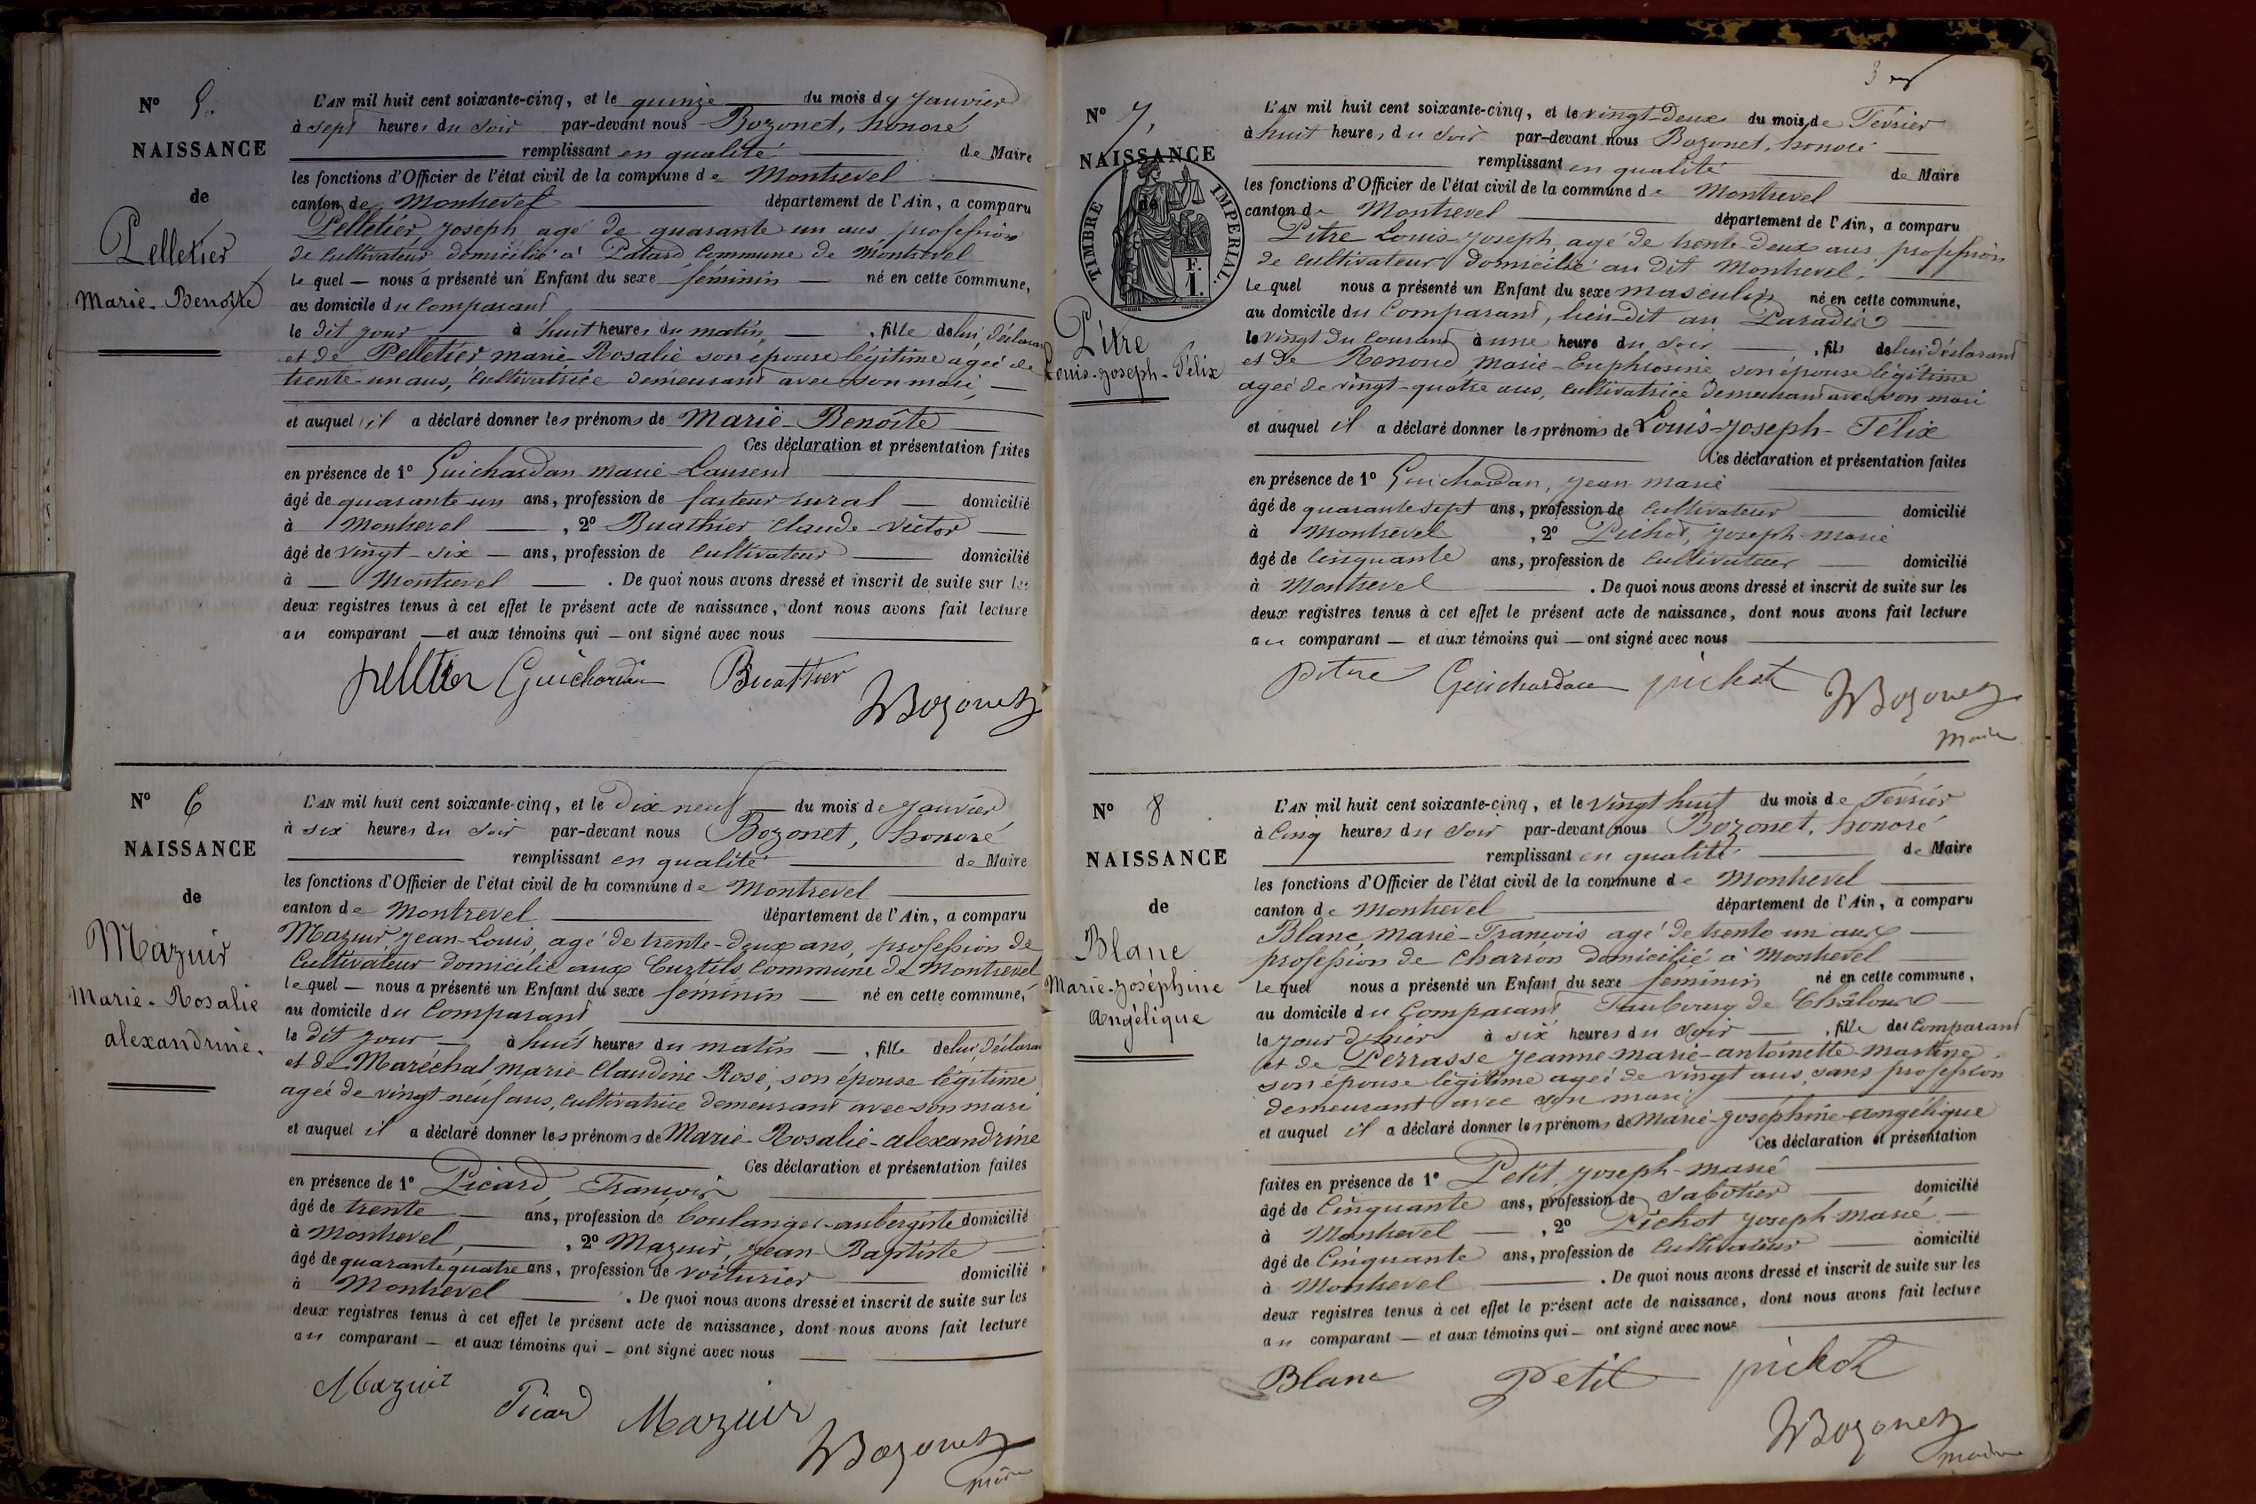 Nº 5.
NAISSANCE
de
Pelletier
Marie-Benoîte
L'AN mil huit cent soixante-cinq, et le quinze du mois de Janvier
à sept heures du soir par-devant nous Bozonet, honoré
remplissant en qualité de Maire
les fonctions d'Officier de l'état civil de la commune de Montrevel
canton de Montrevel département de l'Ain, a comparu
Pelletier Joseph agé de quarante un ans profession
de cultivateur domicilié à Patard commune de Montrevel
lequel nous a présenté un Enfant du sexe féminin né en cette commune,
au domicile du comparant
le dit jour à huit heures du matin, fille de lui déclarant
et de Pelletier marie-Rosalie son épouse légitime ageé de
trente-un ans, cultivatrice demeurant avec son mari
et auquel il a déclaré donner les prénoms de Marie-Benoîte
Ces déclaration et présentation faites
en présence de 1º Guichardan marie-Laurent
âgé de quarante un ans, profession de facteur rural domicilié
à Montrevel, 2º Buathier claude-victor
âgé de vingt-six ans, profession de cultivateur domicilié
à Montrevel. De quoi nous avons dressé et inscrit de suite sur les
deux registres tenus à cet effet le présent acte de naissance, dont nous avons fait lecture
au comparant et aux témoins qui ont signé avec nous
pelletier Guichardan Buathier
HBozonet
Nº 6
NAISSANCE
de
Mazuir
Marie-Rosalie
alexandrine.
L'AN mil huit cent soixante-cinq, et le dix-neuf du mois de Janvier
à six heures du soir par-devant nous Bozonet, honoré
remplissant en qualité de Maire
les fonctions d'Officier de l'état civil de la commune de Montrevel
canton de Montrevel département de l'Ain, a comparu
Mazuir Jean-Louis, agé de trente-deux ans, profession de
cultivateur domicilié aux Curtils commune de Montrevel
lequel nous a présenté un Enfant du sexe féminin né en cette commune,
au domicile du comparant
le dit jour à huit heures du matin, fille de lui déclarant
et de Maréchal marie-Claudine Rose, son épouse légitime
ageé de vingt neuf ans, cultivatrice demeurant avec son mari
et auquel il a déclaré donner les prénoms de Marie-Rosalie-alexandrine
Ces déclaration et présentation faites
en présence de 1º Picard, François
âgé de trente ans, profession de boulanger-aubergiste domicilié
à Montrevel, 2º Mazuir, Jean-Baptiste
âgé de quarante quatre ans, profession de voiturier domicilié
à Montrevel. De quoi nous avons dressé et inscrit de suite sur les
deux registres tenus à cet effet le présent acte de naissance, dont nous avons fait lecture
au comparant et aux témoins qui ont signé avec nous
Mazuir
Picard Mazuir
HBozonet
maire
3
Nº 7,
NAISSANCE
de
TIMBRE IMPERIAL.
F.
1.
Pitre
Louis-Joseph-Félix
L'AN mil huit cent soixante-cinq, et le vingt-deux du mois de Février
à huit heures du soir par-devant nous Bozonet, honoré
remplissant en qualité de Maire
les fonctions d'Officier de l'état civil de la commune de Montrevel
canton de Montrevel département de l'Ain, a comparu
Pitre Louis-Joseph, agé de trente-deux ans, profession
de cultivateur domicilié au dit Montrevel
lequel nous a présenté un Enfant du sexe masculin né en cette commune,
au domicile du comparant, lieu-dit au Paradis
le vingt du courant à une heure du soir, fils de lui déclarant
et de Renoud, Marie-Euphrosine son épouse légitime
ageé de vingt-quatre ans, cultivatrice demeurant avec son mari
et auquel il a déclaré donner les prénoms de Louis-Joseph-Félix
Ces déclaration et présentation faites
en présence de 1º Guichardan, Jean-marie
âgé de quarante sept ans, profession de cultivateur domicilié
à Montrevel, 2º Pichot, Joseph-marie
âgé de cinquante ans, profession de cultivateur domicilié
à Montrevel. De quoi nous avons dressé et inscrit de suite sur les
deux registres tenus à cet effet le présent acte de naissance, dont nous avons fait lecture
au comparant et aux témoins qui ont signé avec nous
pitre Guichardan pichot
HBozonet
maire
Nº 8
NAISSANCE
de
Blanc
Marie-Joséphine
Angélique
L'AN mil huit cent soixante-cinq, et le vingt huit du mois de Février
à cinq heures du soir par-devant nous Bozonet, honoré
remplissant en qualité de Maire
les fonctions d'Officier de l'état civil de la commune de Montrevel
canton de Montrevel département de l'Ain, a comparu
Blanc, Marie-François agé de trente un ans
profession de charron domicilié à Montrevel
lequel nous a présenté un Enfant du sexe féminin né en cette commune,
au domicile du comparant Faubourg de Châlons
le jour d'hier à six heures du soir, fille du comparant
et de Perrasse Jeanne-marie-antoinette-martine
son épouse légitime ageé de vingt ans, sans profession
demeurant avec son mari
et auquel il a déclaré donner les prénoms de Marie-Joséphine-angélique
Ces déclaration et présentation
faites en présence de 1º Petit, Joseph-marie
âgé de cinquante ans, profession de sabotier domicilié
à Montrevel, 2º Pichot Joseph-marie
âgé de cinquante ans, profession de cultivateur domicilié
à Montrevel. De quoi nous avons dressé et inscrit de suite sur les
deux registres tenus à cet effet le présent acte de naissance, dont nous avons fait lecture
au comparant et aux témoins qui ont signé avec nous
Blanc Petit pichot
HBozonet
maire